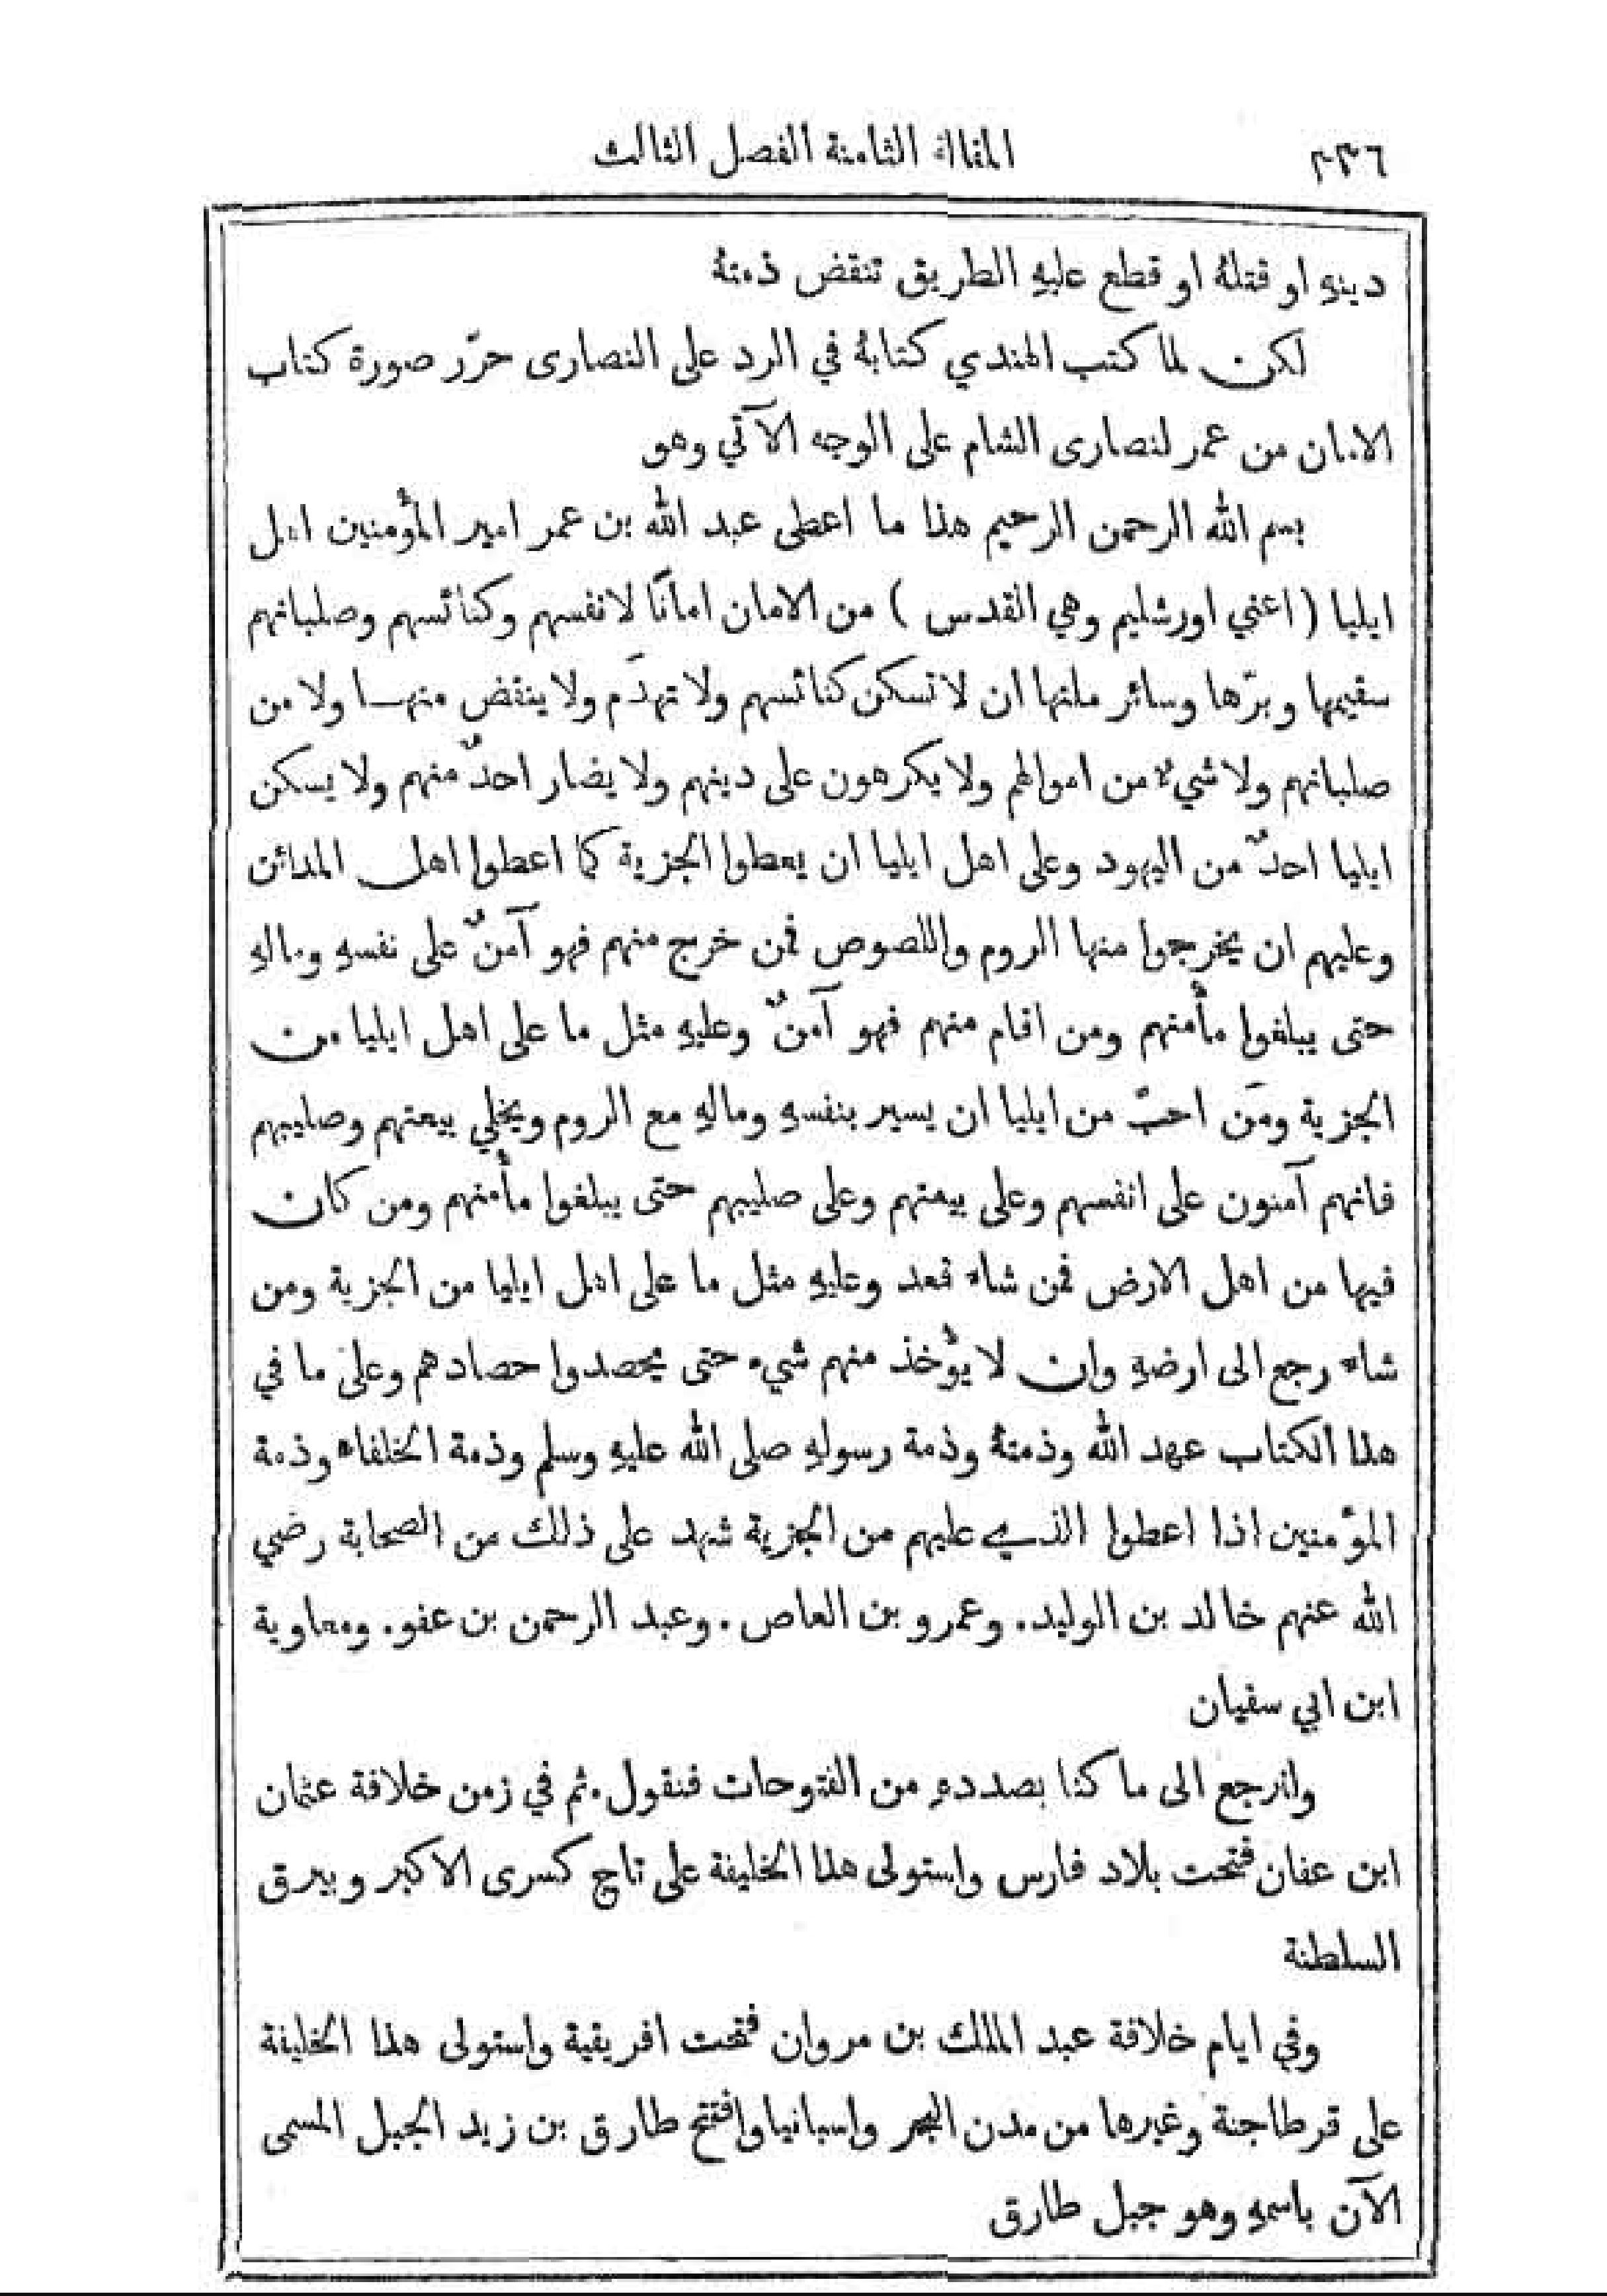 ٣٣٦
المقالة الثامنة الفصل الثالث
دينهِ او قتلهُ او قطع عليهِ الطريق تنقض ذمتهُ
لكن لما كتب الهندي كتابهُ في الرد على النصارى حرّر صورة كتاب
الامان من عمر لنصارى الشام على الوجه الآتي وهو
بسم الله الرحمن الرحيم هذا ما اعطى عبد الله بن عمر امير المؤمنين اهل
ايليا (اعني اورشليم وهي القدس) من الامان امانًا لانفسهم وكنائسهم وصلبانهم
سقيمها وبرّها وسائر ملتها ان لا تسكن كنائسهم ولا تهدَم ولا ينتقض منها ولا من
صلبانهم ولا شيءٌ من اموالهم ولا يكرهون على دينهم ولا يضار احدٌ منهم ولا يسكن
ايليا احدٌ من اليهود وعلى اهل ايليا ان يعطوا الجزية كما اعطوا اهل المدائن
وعليهم ان يخرجوا منها الروم واللصوص فمن خرج منهم فهو آمنٌ على نفسهِ ومالهِ
حتى يبلغوا مأمنهم ومن اقام منهم فهو آمنٌ وعليهِ مثل ما على اهل ايليا من
الجزية ومَن احبّ من ايليا ان يسير بنفسهِ ومالهِ مع الروم ويخلي بيعتهم وصليبهم
فانهم آمنون على انفسهم وعلى بيعتهم وعلى صليبهم حتى يبلغوا مأمنهم ومن كان
فيها من اهل الارض فمن شاء قعد وعليهِ مثل ما على اهل ايليا من الجزية ومن
شاء رجع الى ارضهِ وان لا يؤخذ منهم شيء حتى يحصدوا حصادهم وعلى ما في
هذا الكتاب عهد الله وذمتهُ وذمة رسولهِ صلى الله عليهِ وسلم وذمة الخلفاء وذمة
المؤمنين اذا اعطوا الذي عليهم من الجزية شهد على ذلك من الصحابة رضي
الله عنهم خالد بن الوليد. وعمرو بن العاص. وعبد الرحمن بن عفو. ومعاوية
ابن ابي سفيان
ولنرجع الى ما كنا بصددهِ من الفتوحات فنقول. ثم في زمن خلافة عثمان
ابن عفان فتحت بلاد فارس واستولى هذا الخليفة على تاج كسرى الاكبر وبيرق
السلطنة
وفي ايام خلافة عبد الملك بن مروان فتحت افريقية واستولى هذا الخليفة
على قرطاجنة وغيرها من مدن البحر واسبانيا وافتتح طارق بن زيد الجبل المسمى
الآن باسمهِ وهو جبل طارق